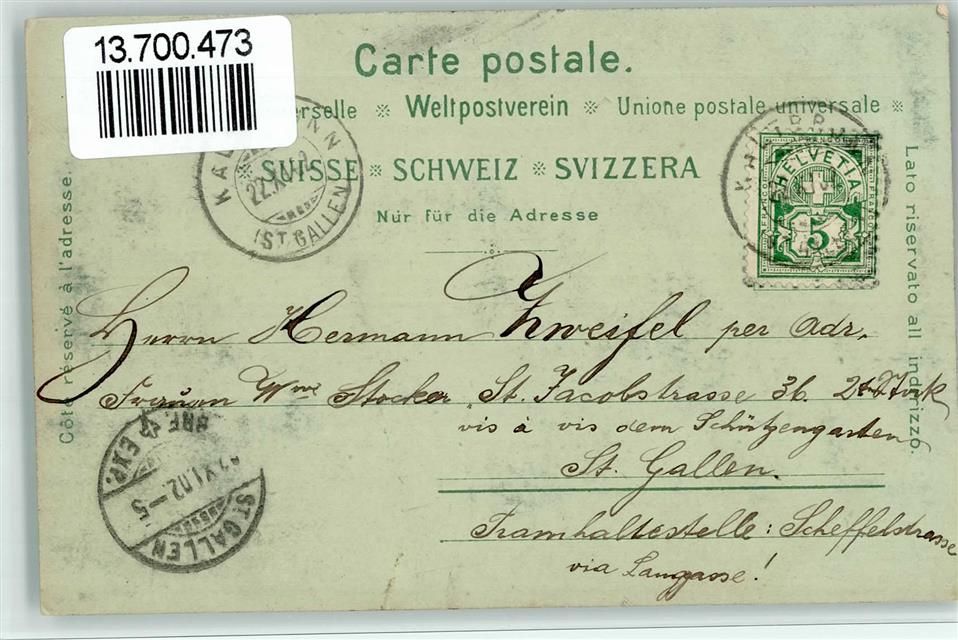 13.700.473
Carte postale.
erselle ※ Weltpostverein ※ Unione postale universale ※
SUISSE ※ SCHWEIZ ※ SVIZZERA
Nur für die Adresse
Côté réservé à l'adresse.
Lato riservato all indirizzo.
(ST. GALLEN)
HELVETIA
FRANCO
5
Herrn Hermann Zweifel per Adr.
Frauen Wwe Stocker St. Jacobstrasse 36. 2. Stock
vis à vis dem Schützengarten
St. Gallen.
Tramhaltestelle: Scheffelstrasse
via Langgasse!
BRF. EXP.
XI.02-5
ST. GALLEN